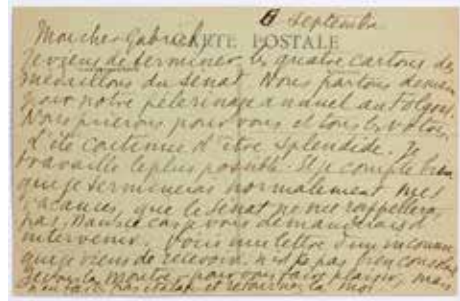 6 Septembre
Mon cher Gabriel
CARTE POSTALE
Je viens de terminer les quatre cartons des
médaillons du Sénat Nous partons demain
pour notre pèlerinage annuel au Folgoët.
Nous prierons pour vous et tous les vôtres
L'été continue d'être splendide. Je
travaille le plus possible. Et je compte bien
que je terminerai normalement mes
vacances, que le Sénat ne me rappellera
pas. Dans ce cas à vous demanderais d
intervenir. Voici une lettre d'un inconnu
que je viens de recevoir. n'est pas bien
Je vous la montre pour vous faire plaisir, mais
n'en faire pas état et retournez la moi